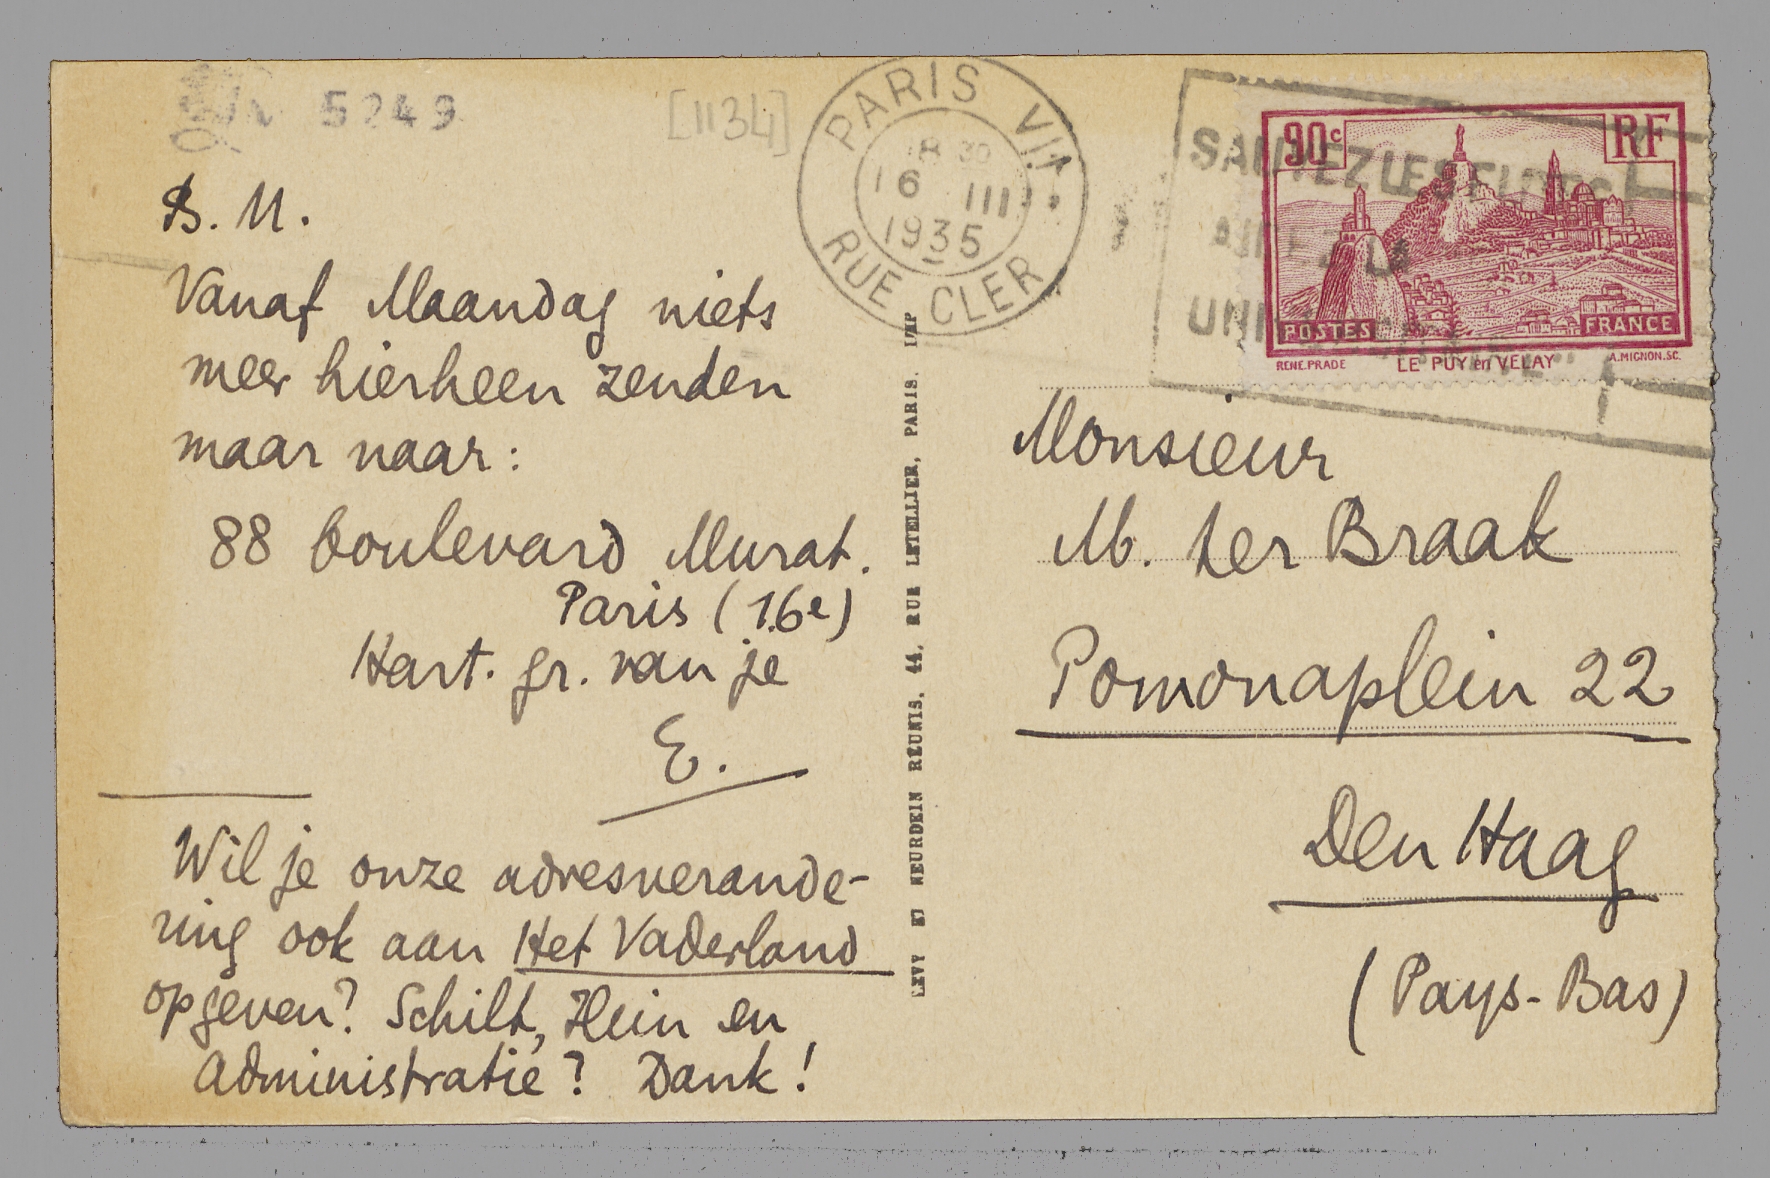 5249
[1134]
PARIS VII
18 30
16 III
1935
RUE CLER
90c
RF
POSTES
FRANCE
RENE.PRADE
LE PUY en VELAY
A.MIGNON.SC.
B. M.
Vanaf Maandag niets
meer hierheen zenden
maar naar:
88 boulevard Murat.
Paris (16e)
Hart. gr. van je
E.
Wil je onze adresverande-
ring ook aan Het Vaderland
opgeven? Schilt, Hein en
Administratie? Dank!
LEVY ET NEURDEIN RÉUNIS, 44, RUE LETELLIER, PARIS. IMP
Monsieur
M. ter Braak
Pomonaplein 22
Den Haag
(Pays-Bas)